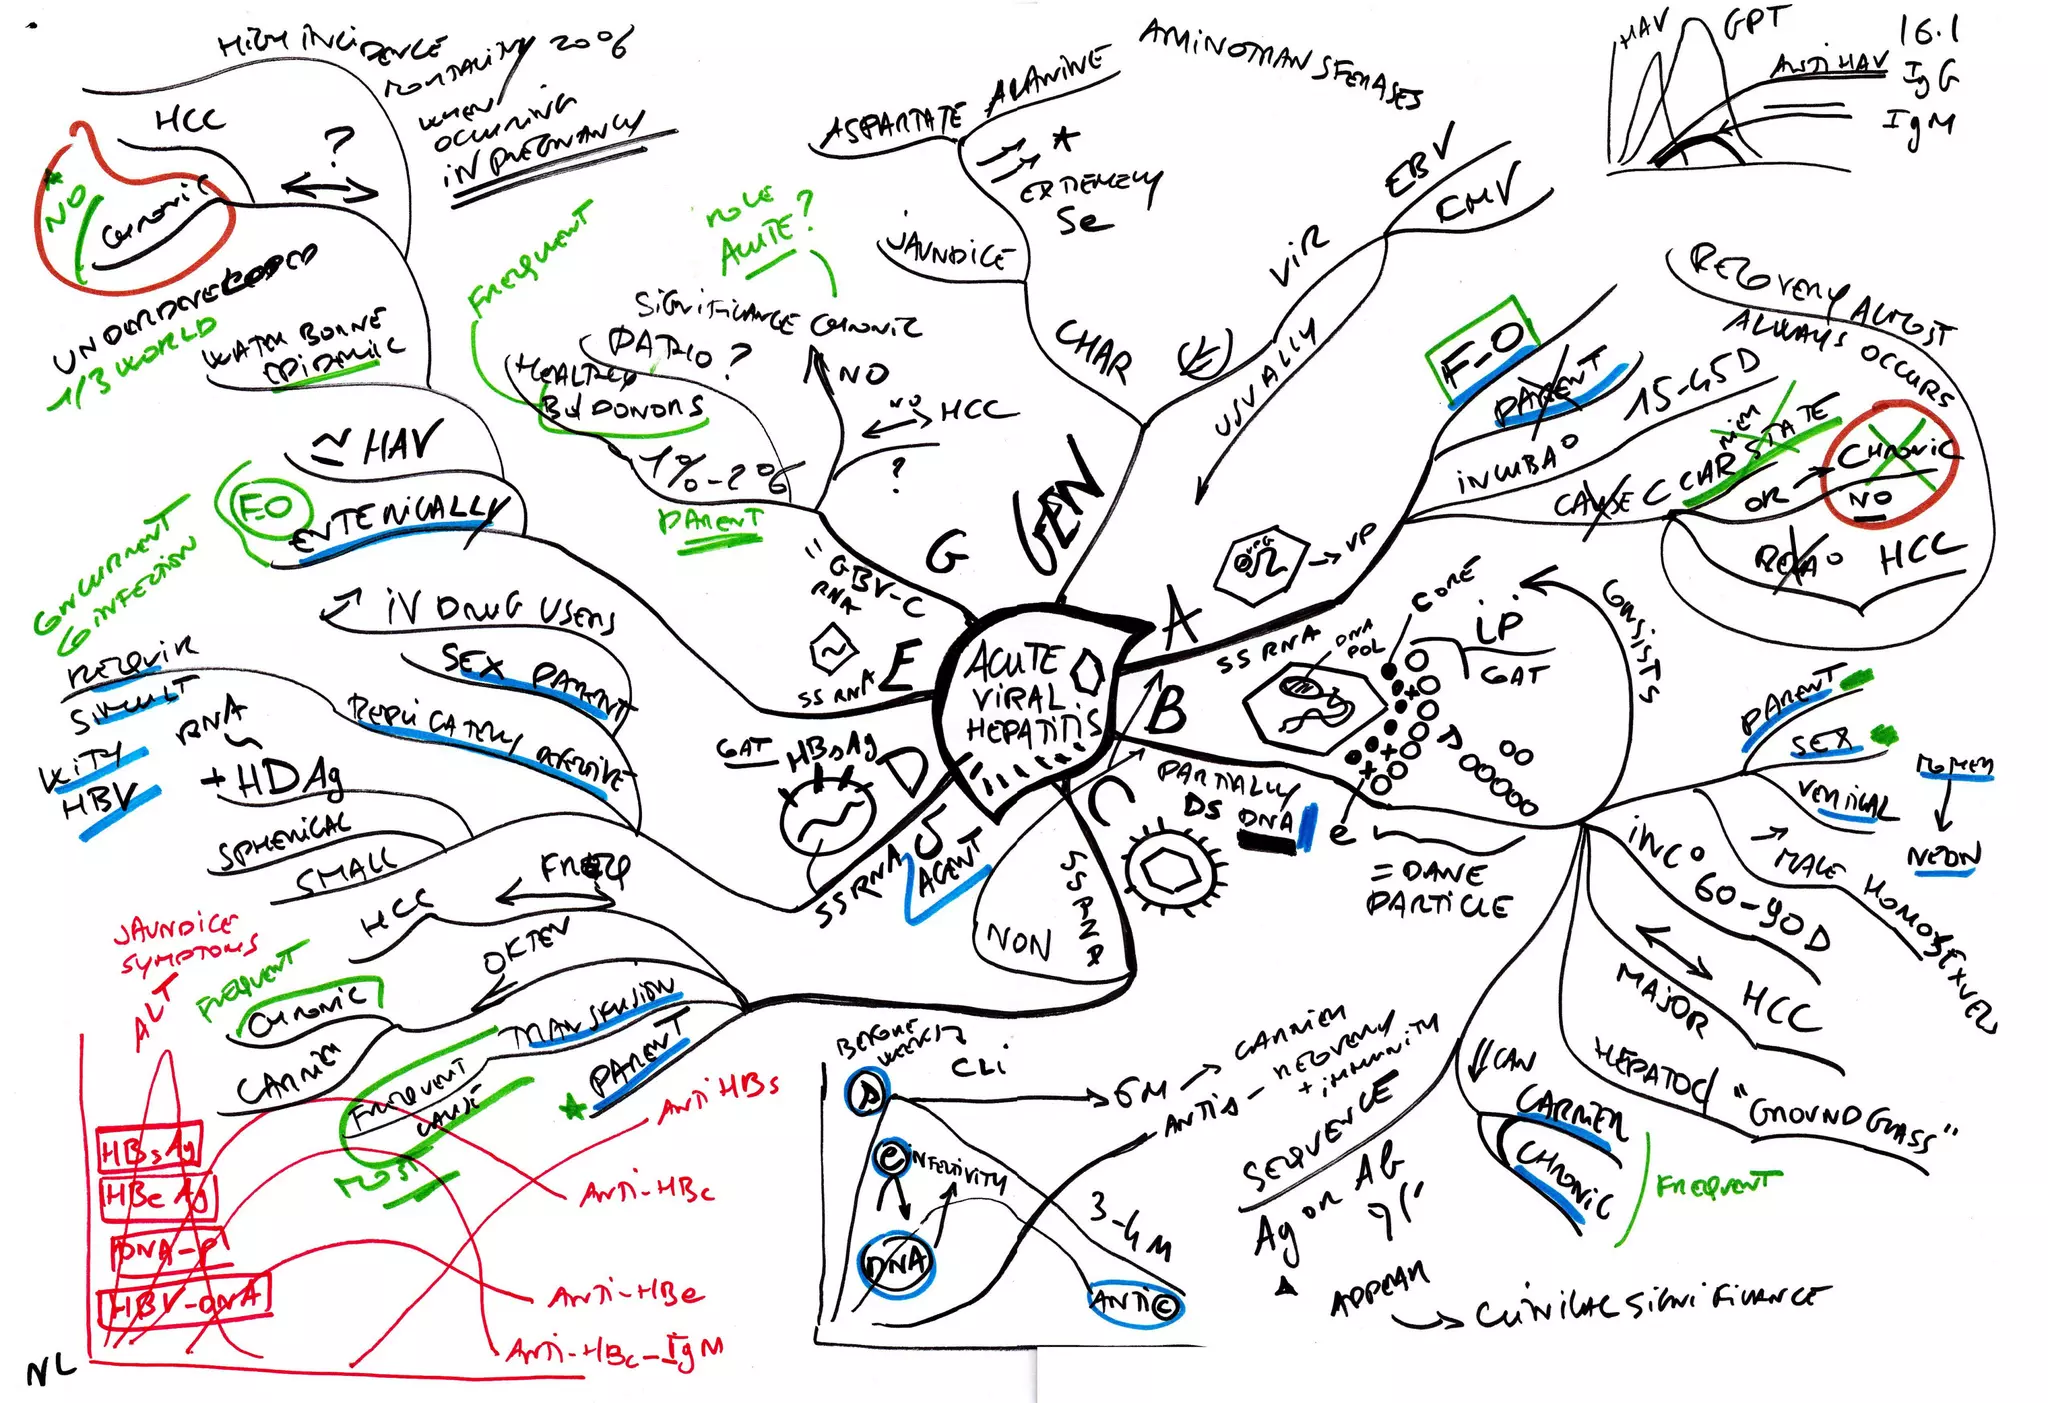 HIGH INCIDENCE
MORTALITY 20%
WHEN
OCCURING
IN PREGNANCY
HCC
?
NO
CHRONIC
UNDERDEVELOPED
1/3 WORLD
WATER BORNE
EPIDEMIC
≃ HAV
F-O
ENTERICALLY
E
SS RNA
FREQUENT
ROLE
ACUTE?
SIGNIFICANCE CHRONIC
PATHO ?
HEALTHY
BL DONORS
1%-2%
PARENT
NO
NO
HCC
?
G
= GBV-C
RNA
ASPARTATE
ALANINE
AMINOTRANSFERASES
EXTREMELY
Se
JAUNDICE
CHAR
GEN
VIR
USUALLY
EBV
CMV
HAV
GPT
ANTI HAV
16.1
IgG
IgM
A
SS RNA
VPG
→ VP
F-O
PARENT
INCUBA°
15-45D
CAUSE C CARSTATE
OR → CHRONIC
NO
HCC
RECOVERY ALMOST
ALWAYS OCCURS
ACUTE
VIRAL
HEPATITIS
B
PARTIALLY
DS DNA
DNA
POL
CORE
iP
GAT
CONSISTS
e
= DANE
PARTICLE
PARENT
SEX
VERTICAL
MOTHER
NEON
MALE HOMOSEXUELS
INC° 60-90D
MAJOR
HCC
HEPATOC
"GROUND GLASS"
CAN
CARRIER
CHRONIC
FREQUENT
SEQUENCE
Ag OR Ab
APPEAR
→ CLINICAL SIGNIFICANCE
C
SS RNA
NON
HCC
FREQ
OFTEN
FREQUENT
CHRONIC
CARRIER
TRANSFUSION
PARENT
FREQUENT
CAUSE
MOST
D
GAT
HBsAg
SS RNA
AGENT
CONCURRENT
COINFECTION
IV DRUG USERS
SEX PARENT
REPLICATELY DEFECTIVE
REQUIR
SIMULT
WITH
HBV
RNA
+ HDAg
SPHERICAL
SMALL
JAUNDICE
SYMPTOMS
ALT
HBsAg
HBeAg
DNA-P
HBV-DNA
ANTI HBs
ANTI-HBc
ANTI-HBe
ANTI-HBc-IgM
NL
BEFORE
WEEKS
CLI
6M → CARRIER
ANTIs - RECOVERY
+ IMMUNITY
e INFECTIVITY
DNA
3-4M
ANTI C